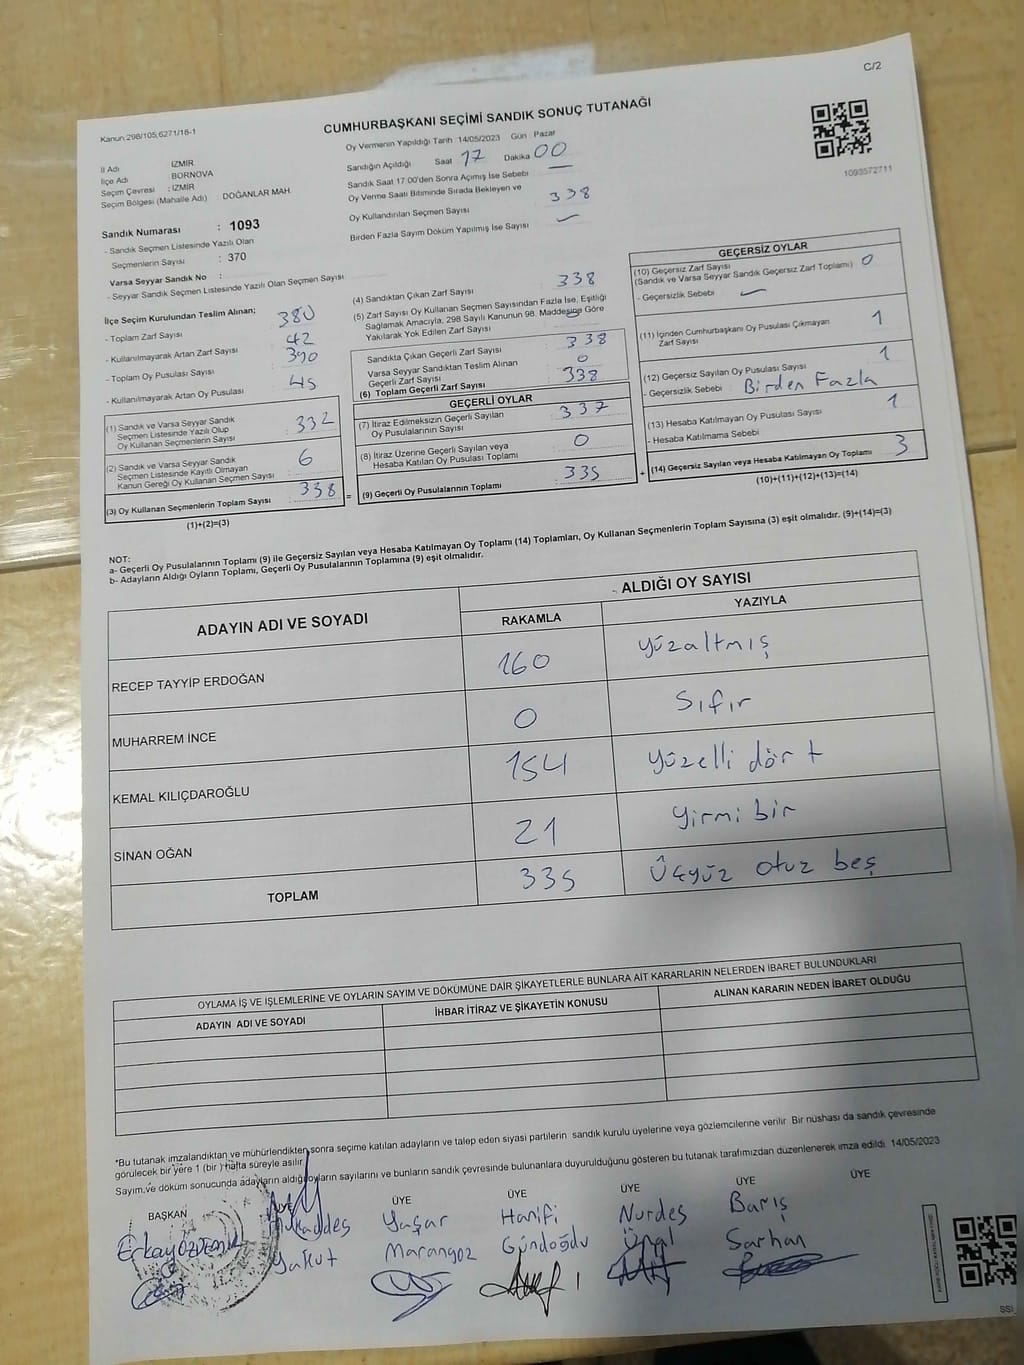 C/2
Kanun:298/105;6271/18-1
CUMHURBAŞKANI SEÇİMİ SANDIK SONUÇ TUTANAĞI
1093572711
İl Adı İZMİR
İlçe Adı BORNOVA
Seçim Çevresi : İZMİR
Seçim Bölgesi (Mahalle Adı) DOĞANLAR MAH.
Sandık Numarası : 1093
- Sandık Seçmen Listesinde Yazılı Olan
Seçmenlerin Sayısı : 370
Varsa Seyyar Sandık No :
- Seyyar Sandık Seçmen Listesinde Yazılı Olan Seçmen Sayısı
Oy Vermenin Yapıldığı Tarih :14/05/2023 Gün : Pazar
Sandığın Açıldığı Saat 17 Dakika 00
Sandık Saat 17:00'den Sonra Açımış İse Sebebi
Oy Verme Saati Bitiminde Sırada Bekleyen ve
Oy Kullandırılan Seçmen Sayısı 338
Birden Fazla Sayım Döküm Yapılmış İse Sayısı
İlçe Seçim Kurulundan Teslim Alınan;
- Toplam Zarf Sayısı 380
- Kullanılmayarak Artan Zarf Sayısı 42
- Toplam Oy Pusulası Sayısı 390
- Kullanılmayarak Artan Oy Pusulası 45
(1) Sandık ve Varsa Seyyar Sandık
Seçmen Listesinde Yazılı Olup
Oy Kullanan Seçmenlerin Sayısı 332
(2) Sandık ve Varsa Seyyar Sandık
Seçmen Listesinde Kayıtlı Olmayan
Kanun Gereği Oy Kullanan Seçmen Sayısı 6
(3) Oy Kullanan Seçmenlerin Toplam Sayısı : 338 =
(1)+(2)=(3)
(4) Sandıktan Çıkan Zarf Sayısı 338
(5) Zarf Sayısı Oy Kullanan Seçmen Sayısından Fazla İse, Eşitliği
Sağlamak Amacıyla, 298 Sayılı Kanunun 98. Maddesine Göre
Yakılarak Yok Edilen Zarf Sayısı
Sandıkta Çıkan Geçerli Zarf Sayısı : 338
Varsa Seyyar Sandıktan Teslim Alınan
Geçerli Zarf Sayısı : 0
(6) Toplam Geçerli Zarf Sayısı : 338
GEÇERLİ OYLAR
(7) İtiraz Edilmeksizin Geçerli Sayılan
Oy Pusulalarının Sayısı : 337
(8) İtiraz Üzerine Geçerli Sayılan veya
Hesaba Katılan Oy Pusulası Toplamı : 0
(9) Geçerli Oy Pusulalarının Toplamı : 335 +
GEÇERSİZ OYLAR
(10) Geçersiz Zarf Sayısı
(Sandık ve Varsa Seyyar Sandık Geçersiz Zarf Toplamı) 0
- Geçersizlik Sebebi
(11) İçinden Cumhurbaşkanı Oy Pusulası Çıkmayan
Zarf Sayısı : 1
(12) Geçersiz Sayılan Oy Pusulası Sayısı 1
- Geçersizlik Sebebi : Birden Fazla
(13) Hesaba Katılmayan Oy Pusulası Sayısı 1
- Hesaba Katılmama Sebebi
(14) Geçersiz Sayılan veya Hesaba Katılmayan Oy Toplamı : 3
(10)+(11)+(12)+(13)=(14)
NOT:
a- Geçerli Oy Pusulalarının Toplamı (9) ile Geçersiz Sayılan veya Hesaba Katılmayan Oy Toplamı (14) Toplamları, Oy Kullanan Seçmenlerin Toplam Sayısına (3) eşit olmalıdır. (9)+(14)=(3)
b- Adayların Aldığı Oyların Toplamı, Geçerli Oy Pusulalarının Toplamına (9) eşit olmalıdır.
ADAYIN ADI VE SOYADI ALDIĞI OY SAYISI
RAKAMLA YAZIYLA
RECEP TAYYİP ERDOĞAN 160 yüzaltmış
MUHARREM İNCE 0 Sıfır
KEMAL KILIÇDAROĞLU 154 yüzelli dört
SİNAN OĞAN 21 yirmi bir
TOPLAM 335 Üçyüz otuz beş
OYLAMA İŞ VE İŞLEMLERİNE VE OYLARIN SAYIM VE DÖKÜMÜNE DAİR ŞİKAYETLERLE BUNLARA AİT KARARLARIN NELERDEN İBARET BULUNDUKLARI
ADAYIN ADI VE SOYADI İHBAR İTİRAZ VE ŞİKAYETİN KONUSU ALINAN KARARIN NEDEN İBARET OLDUĞU
*Bu tutanak imzalandıktan ve mühürlendikten sonra seçime katılan adayların ve talep eden siyasi partilerin sandık kurulu üyelerine veya gözlemcilerine verilir. Bir nüshası da sandık çevresinde
görülecek bir yere 1 (bir) hafta süreyle asılır.
Sayım ve döküm sonucunda adayların aldığı oyların sayılarını ve bunların sandık çevresinde bulunanlara duyurulduğunu gösteren bu tutanak tarafımızdan düzenlenerek imza edildi. 14/05/2023
BAŞKAN ÜYE ÜYE ÜYE ÜYE ÜYE ÜYE
Erkay ÖZDEMİR Mukaddes Yakut Yaşar Marangoz Hanifi Gündoğdu Nurdeş Ünal Barış Sarhan
SSI